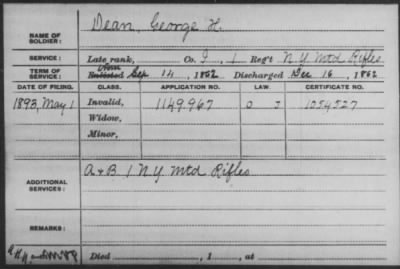 NAME OF SOLDIER: Dean, George H.
SERVICE: Late rank, Co. I, 1 Reg't N.Y. Mtd Rifles
TERM OF SERVICE: Enlisted Sep 14, 1862 Discharged Dec 16, 1862
DATE OF FILING. CLASS. APPLICATION NO. LAW. CERTIFICATE NO.
1893, May 1 Invalid, 1149.967 O J 1054527
Widow,
Minor,
ADDITIONAL SERVICES: A + B 1 N.Y. Mtd Rifles
REMARKS:
Died , 1 , at